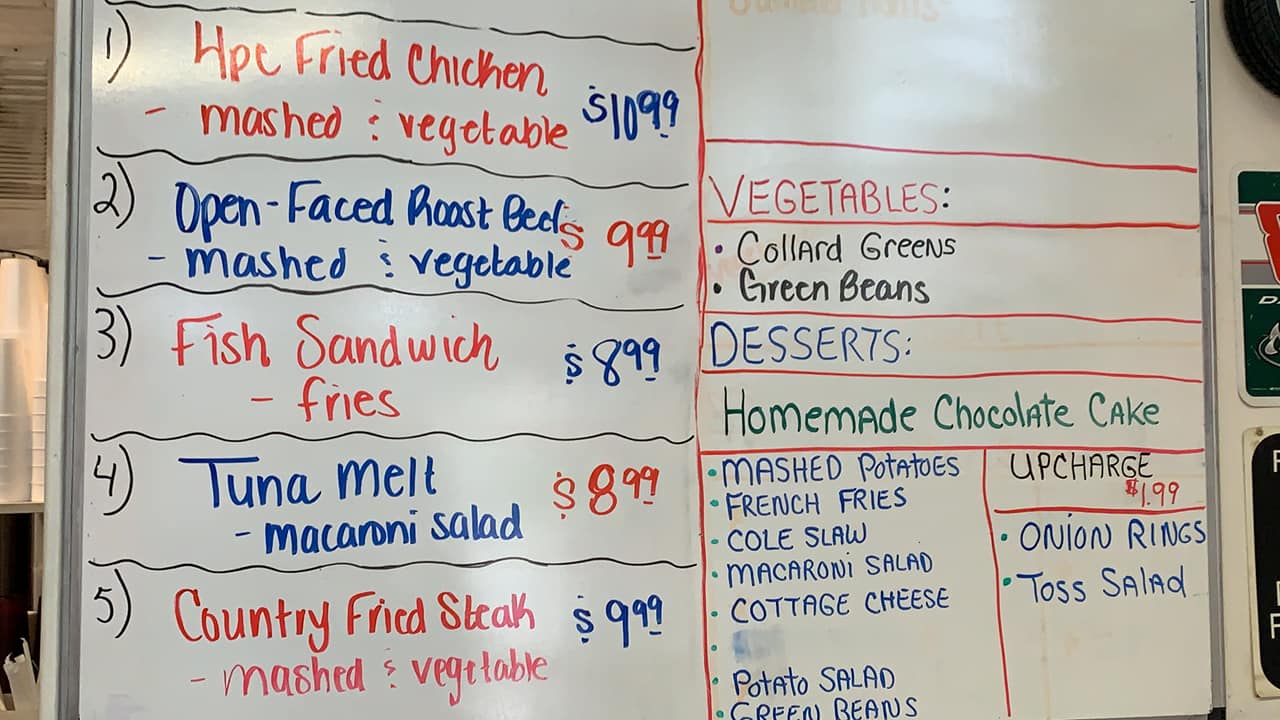 1) 4pc Fried Chicken
- mashed & vegetable $10.99
2) Open-Faced Roast Beef
- mashed & vegetable $9.99
3) Fish Sandwich $8.99
- fries
4) Tuna melt $8.99
- macaroni salad
5) Country Fried Steak $9.99
- mashed & vegetable
VEGETABLES:
• Collard Greens
• Green Beans
DESSERTS:
Homemade Chocolate Cake
• MASHED POTATOES
• FRENCH FRIES
• COLE SLAW
• MACARONi SALAD
• COTTAGE CHEESE
• POTATO SALAD
• GREEN BEANS
UPCHARGE
$1.99
• ONiON RINGS
• Toss SALAD